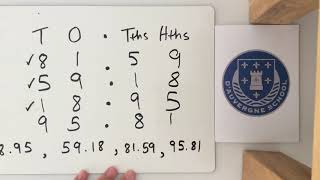 T O . Tths Hths
✓8 1 . 5 9
✓5 9 . 1 8
✓1 8 . 9 5
9 5 . 8 1
8.95 , 59.18 , 81.59 , 95.81
D'AUVERGNE SCHOOL